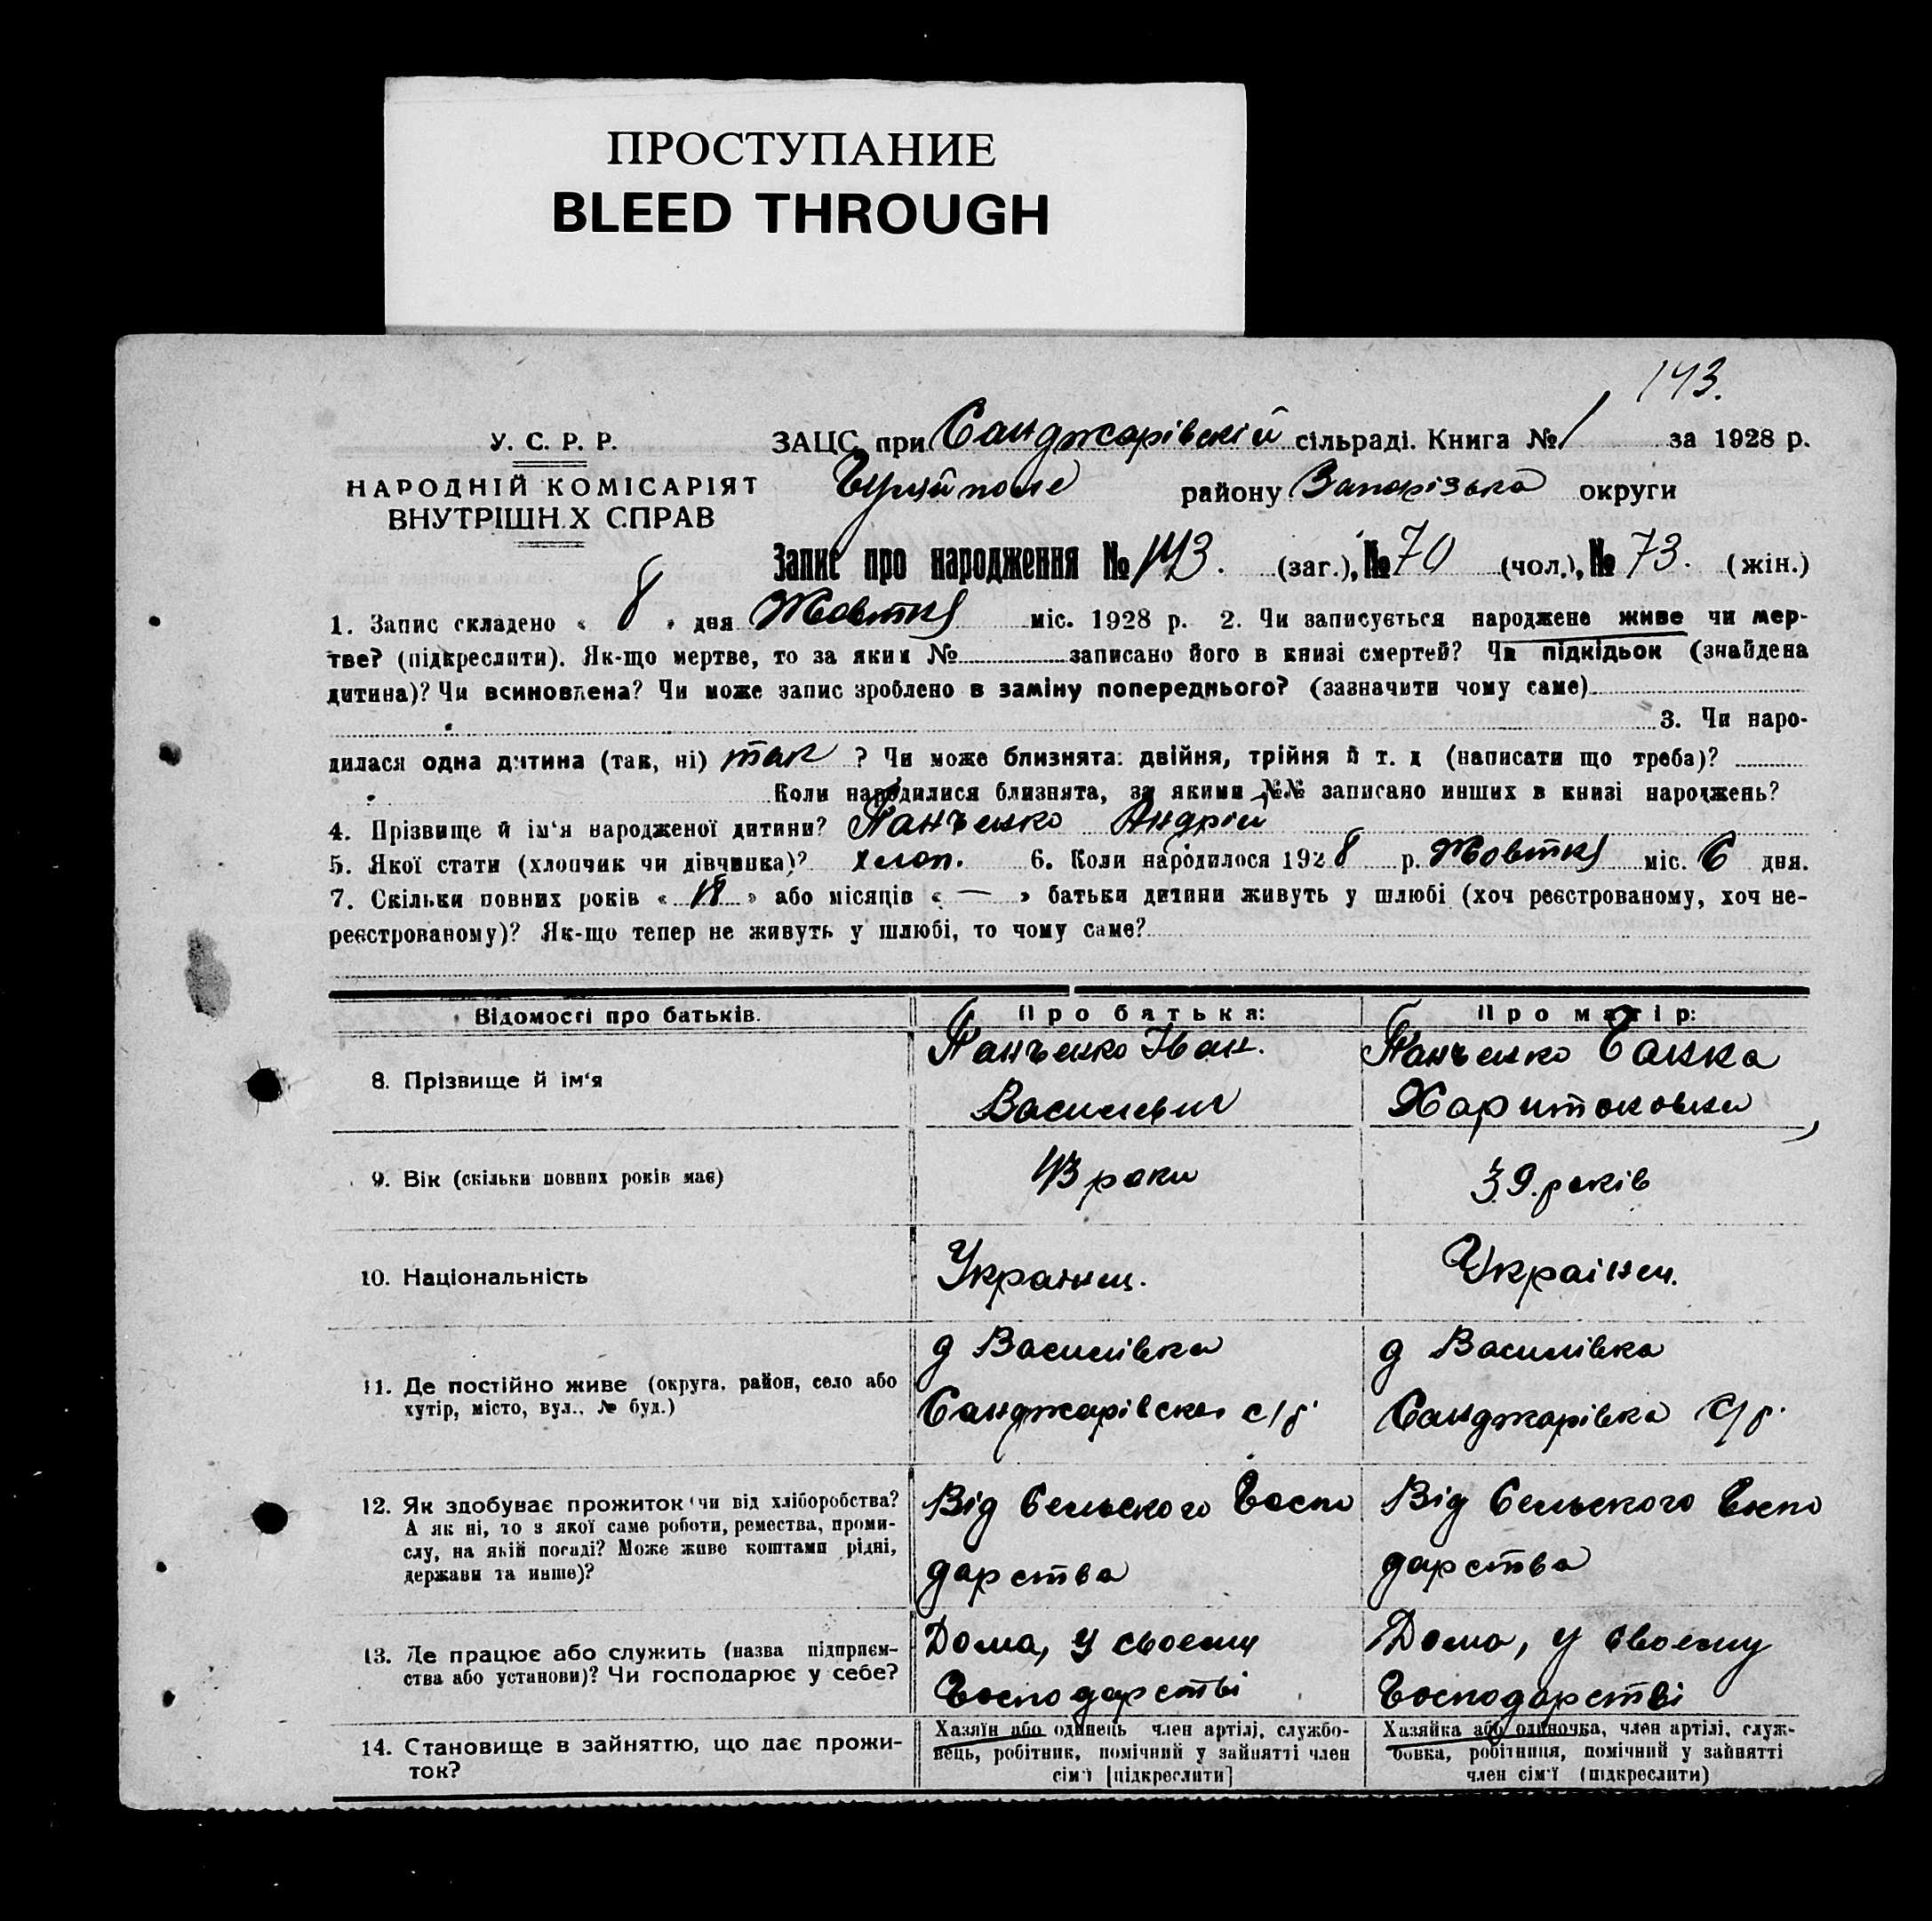 ПРОСТУПАНИЕ
BLEED THROUGH
143.
У. С. Р. Р.
НАРОДНІЙ КОМІСАРІЯТ
ВНУТРІШН Х СПРАВ
ЗАЦС при Санджарівскій сільраді. Книга № 1 за 1928 р.
району Запорізька округи
Запис про народження № 143. (заг.), № 70 (чол.), № 73. (жін.)
1. Запис складено « 8 » дня Жовтня міс. 1928 р. 2. Чи записується народжене живе чи мер-
тве? (підкреслити). Як-що мертве, то за яким № записано його в книзі смертей? Чи підкідьок (знайдена
дитина)? Чи всиновлена? Чи може запис зроблено в заміну попереднього? (зазначити чому саме)
3. Чи наро-
дилася одна дитина (так, ні) так ? Чи може близнята: двійня, трійня й т. д (написати що треба)?
Коли народилися близнята, за якими №№ записано инших в книзі народжень?
4. Прізвище й ім'я народженої дитини? Панченко Андрій
5. Якої стати (хлопчик чи дівчинка)? хлоп. 6. Коли народилося 1928 р. Жовтня міс. 6 дня.
7. Скільки повних років « 18 » або місяців « — » батьки дитини живуть у шлюбі (хоч реєстрованому, хоч не-
реєстрованому)? Як-що тепер не живуть у шлюбі, то чому саме?
Відомості про батьків. Про батька: Про матір:
8. Прізвище й ім'я
Панченко Іван.
Василевич
Панченко Ганна
Харитоновна
9. Вік (скільки повних років має) 43 роки 39. років
10. Національність Украінец. Украінец.
11. Де постійно живе (округа, район, село або
хутір, місто, вул., № буд.)
д Василівка
Санджарівска с/р.
д Василівка
Санджарівка С/р.
12. Як здобуває прожиток чи від хліборобства?
А як ні, то з якої саме роботи, ремества, проми-
слу, на якій посаді? Може живе коштами рідні,
держави та инше)?
Від Сельского Госпо
дарства
Від Сельского Госпо
дарства
13. Де працює або служить (назва підприєм-
ства або установи)? Чи господарює у себе?
Дома, у своему
Господарстві
Дома, у своему
Господарстві
14. Становище в зайняттю, що дає прожи-
ток?
Хазяїн або одинець член артілі, службо-
вець, робітник, помічний у зайнятті член
сім'ї [підкреслити]
Хазяйка або одиночка, член артілі, служ-
бовка, робітниця, помічний у зайнятті
член сім'ї (підкреслити)